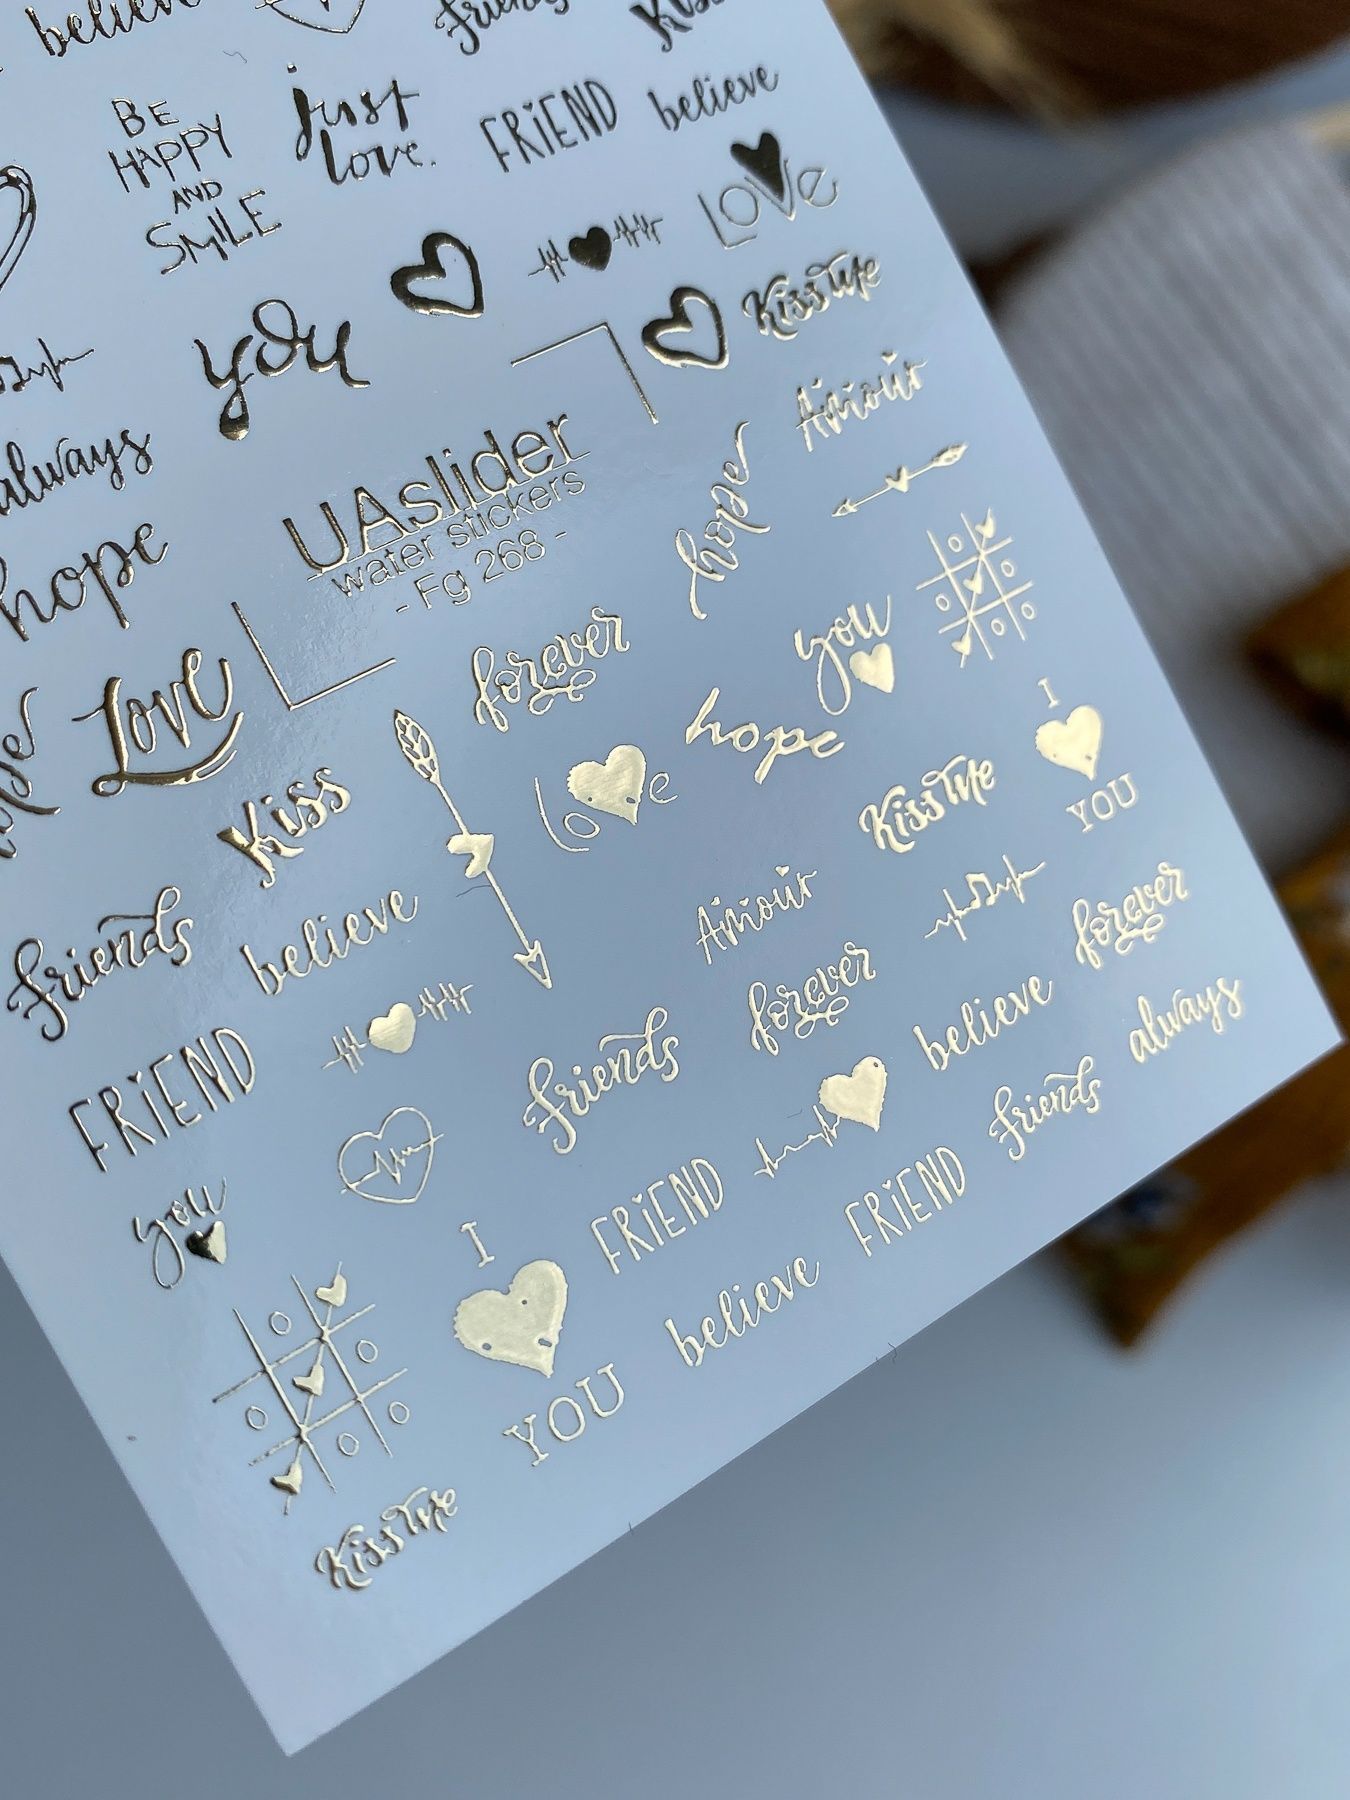 believe
Friends
Kiss
BE
HAPPY
AND
SMILE
just
love.
FRIEND
believe
LOVe
you
Kiss Me
always
Amour
UAslider
water stickers
- Fg 268 -
hope
hope
forever
you
Love
love
hope
I
YOU
Kiss
Kiss Me
Friends
believe
Amour
forever
forever
always
believe
FRIEND
Friends
Friends
you
FRIEND
FRIEND
I
YOU
believe
Kiss Me